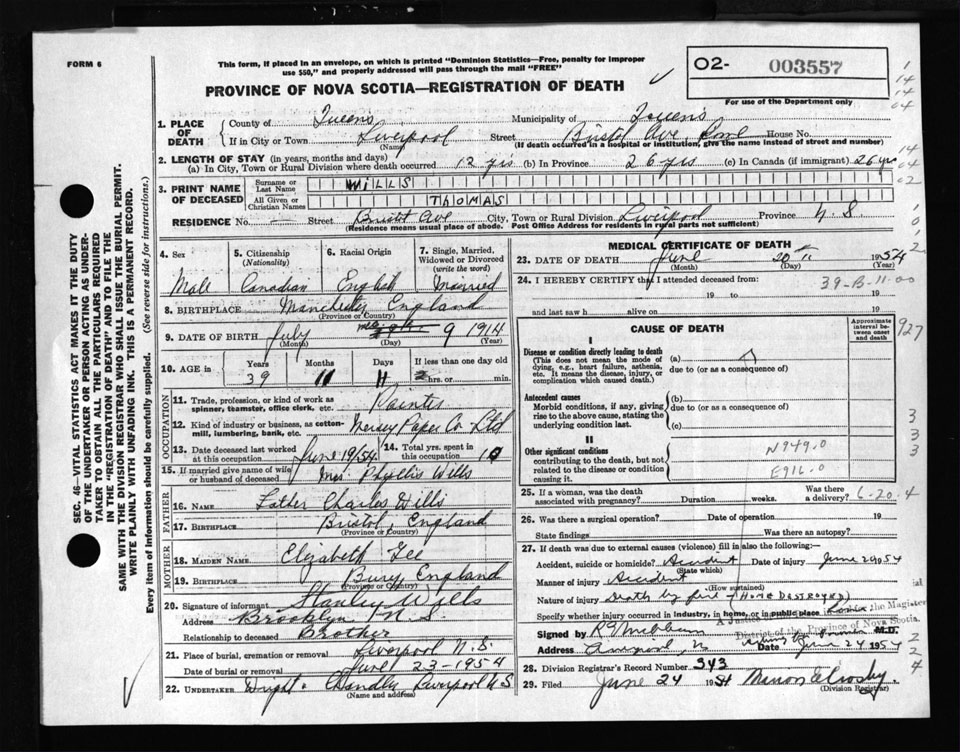 FORM 6
This form, if placed in an envelope, on which is printed "Dominion Statistics—Free, penalty for improper
use $50," and properly addressed will pass through the mail "FREE"
O2- 003557
For use of the Department only
PROVINCE OF NOVA SCOTIA—REGISTRATION OF DEATH
1. PLACE OF DEATH
County of Queens Municipality of Queens
If in City or Town Liverpool Street Bristol Ave, House No.
(Name) (If death occurred in a hospital or institution, give the name instead of street and number)
2. LENGTH OF STAY (in years, months and days)
(a) In City, Town or Rural Division where death occurred 12 yrs (b) In Province 26 yrs (c) In Canada (if immigrant) 26 yrs
3. PRINT NAME OF DECEASED
Surname or Last Name WILLS
All Given or Christian Names THOMAS
RESIDENCE No. — Street Bristol Ave City, Town or Rural Division Liverpool Province N.S.
(Residence means usual place of abode. Post Office Address for residents in rural parts not sufficient)
4. Sex Male
5. Citizenship (Nationality) Canadian
6. Racial Origin English
7. Single, Married, Widowed or Divorced (write the word) Married
8. BIRTHPLACE England
(Province or Country)
9. DATE OF BIRTH July 9 1914
(Month) (Day) (Year)
10. AGE in Years 39 Months 11 Days 11 If less than one day old hrs. or min.
OCCUPATION
11. Trade, profession, or kind of work as spinner, teamster, office clerk, etc. Painter
12. Kind of industry or business, as cotton-mill, lumbering, bank, etc. Mersey Paper Co. Ltd
13. Date deceased last worked at this occupation June 19/54
14. Total yrs. spent in this occupation 10
15. If married give name of wife or husband of deceased Mrs. Phyllis Wills
FATHER
16. Name Father Charles Wills
17. Birthplace Bristol, England
(Province or Country)
MOTHER
18. MAIDEN NAME Elizabeth
19. BIRTHPLACE Bury, England
(Province or Country)
20. Signature of informant Stanley Wills
Address Brooklyn N.S.
Relationship to deceased Brother
21. Place of burial, cremation or removal Liverpool N.S.
Date of burial or removal June 23-1954
22. UNDERTAKER Wright Chandler Liverpool N.S.
MEDICAL CERTIFICATE OF DEATH
23. DATE OF DEATH June 20 1954
(Month) (Day) (Year)
24. I HEREBY CERTIFY that I attended deceased from: 39-B-11-00
19 to 19
and last saw h alive on 19
CAUSE OF DEATH
Approximate interval between onset and death
927
I
Disease or condition directly leading to death (a)
(This does not mean the mode of dying, e.g., heart failure, asthenia, etc. It means the disease, injury, or complication which caused death.)
due to (or as a consequence of)
Antecedent causes (b)
Morbid conditions, if any, giving rise to the above cause, stating the underlying condition last.
due to (or as a consequence of)
(c)
II
Other significant conditions
contributing to the death, but not related to the disease or condition causing it.
N949.0
E916.0
25. If a woman, was the death associated with pregnancy? Duration weeks. Was there a delivery? 6-20-4
26. Was there a surgical operation? Date of operation 19
State findings Was there an autopsy?
27. If death was due to external causes (violence) fill in also the following:—
Accident, suicide or homicide? Accident Date of injury June 20 1954
(State which)
Manner of injury Accident
(How sustained)
Nature of injury Death by fire (HOME DESTROYED)
Specify whether injury occurred in industry, in home, or in public place Home
District of the Province of Nova Scotia.
Signed by M.D.
Address Date June 24 1954
28. Division Registrar's Record Number 343
29. Filed June 24 1954 Marion E Crosby
(Division Registrar)
SEC. 46—VITAL STATISTICS ACT MAKES IT THE DUTY
OF THE UNDERTAKER OR PERSON ACTING AS UNDER-
TAKER TO OBTAIN ALL THE PARTICULARS REQUIRED
IN THE "REGISTRATION OF DEATH" AND TO FILE THE
SAME WITH THE DIVISION REGISTRAR WHO SHALL ISSUE THE BURIAL PERMIT.
WRITE PLAINLY WITH UNFADING INK. THIS IS A PERMANENT RECORD.
Every item of information should be carefully supplied. (See reverse side for instructions.)